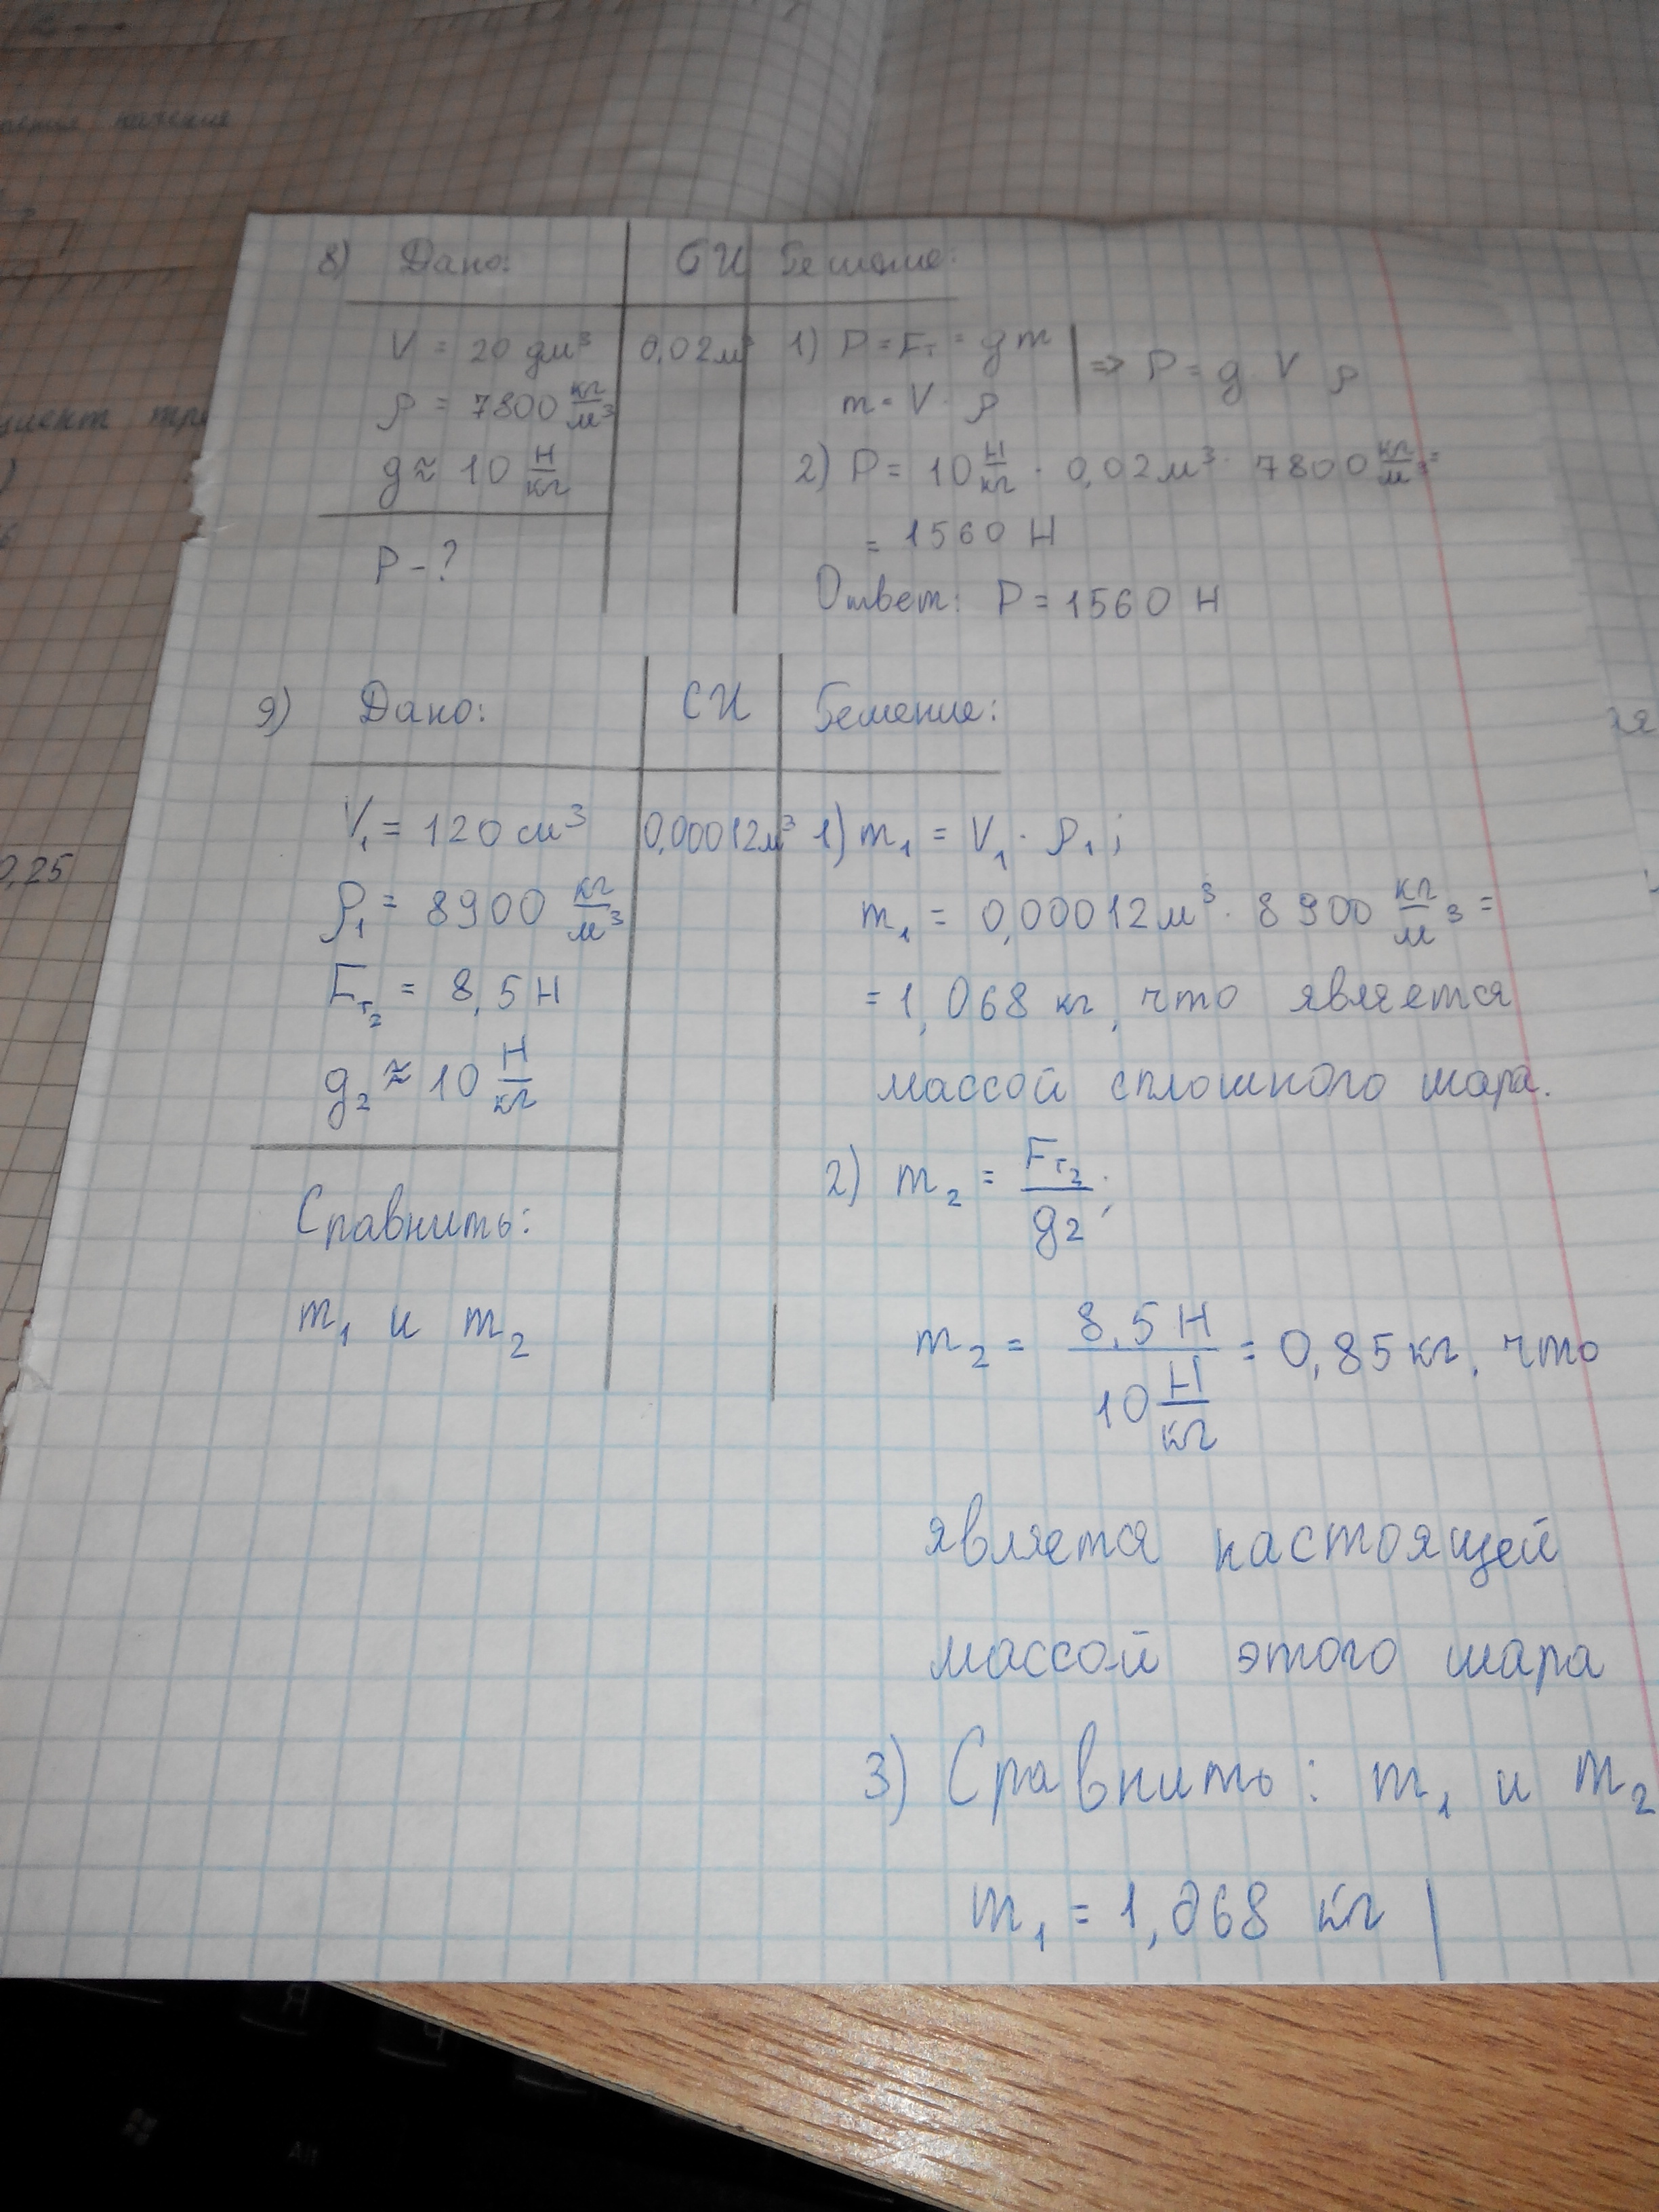 8) Дано: СИ Решение:
V = 20 дм³ 0,02м³ 1) P = Fт = gm
m = V · ρ
⇒ P = g V ρ
ρ = 7800 кг/м³
g ≈ 10 Н/кг 2) P = 10 Н/кг · 0,02м³ · 7800 кг/м³ =
= 1560 Н
P - ?
Ответ: P = 1560 Н
9) Дано: СИ Решение:
V₁ = 120 см³ 0,00012м³ 1) m₁ = V₁ · ρ₁;
ρ₁ = 8900 кг/м³ m₁ = 0,00012м³ · 8900 кг/м³ =
Fт₂ = 8,5Н = 1,068 кг, что является
g₂ ≈ 10 Н/кг массой сплошного шара.
Сравнить: 2) m₂ = Fт₂/g₂;
m₁ и m₂ m₂ = 8,5Н/10 Н/кг = 0,85кг, что
является настоящей
массой этого шара
3) Сравнить: m₁ и m₂
m₁ = 1,068 кг |
0,25
Alt